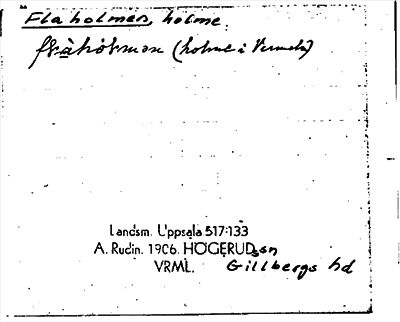 Flaholmen, holme.
flàhòlmən (holme i Vermeln)
Landsm. Uppsala 517:133
A. Rudin. 1906. HÖGERUD sn
VRML. Gillbergs hd